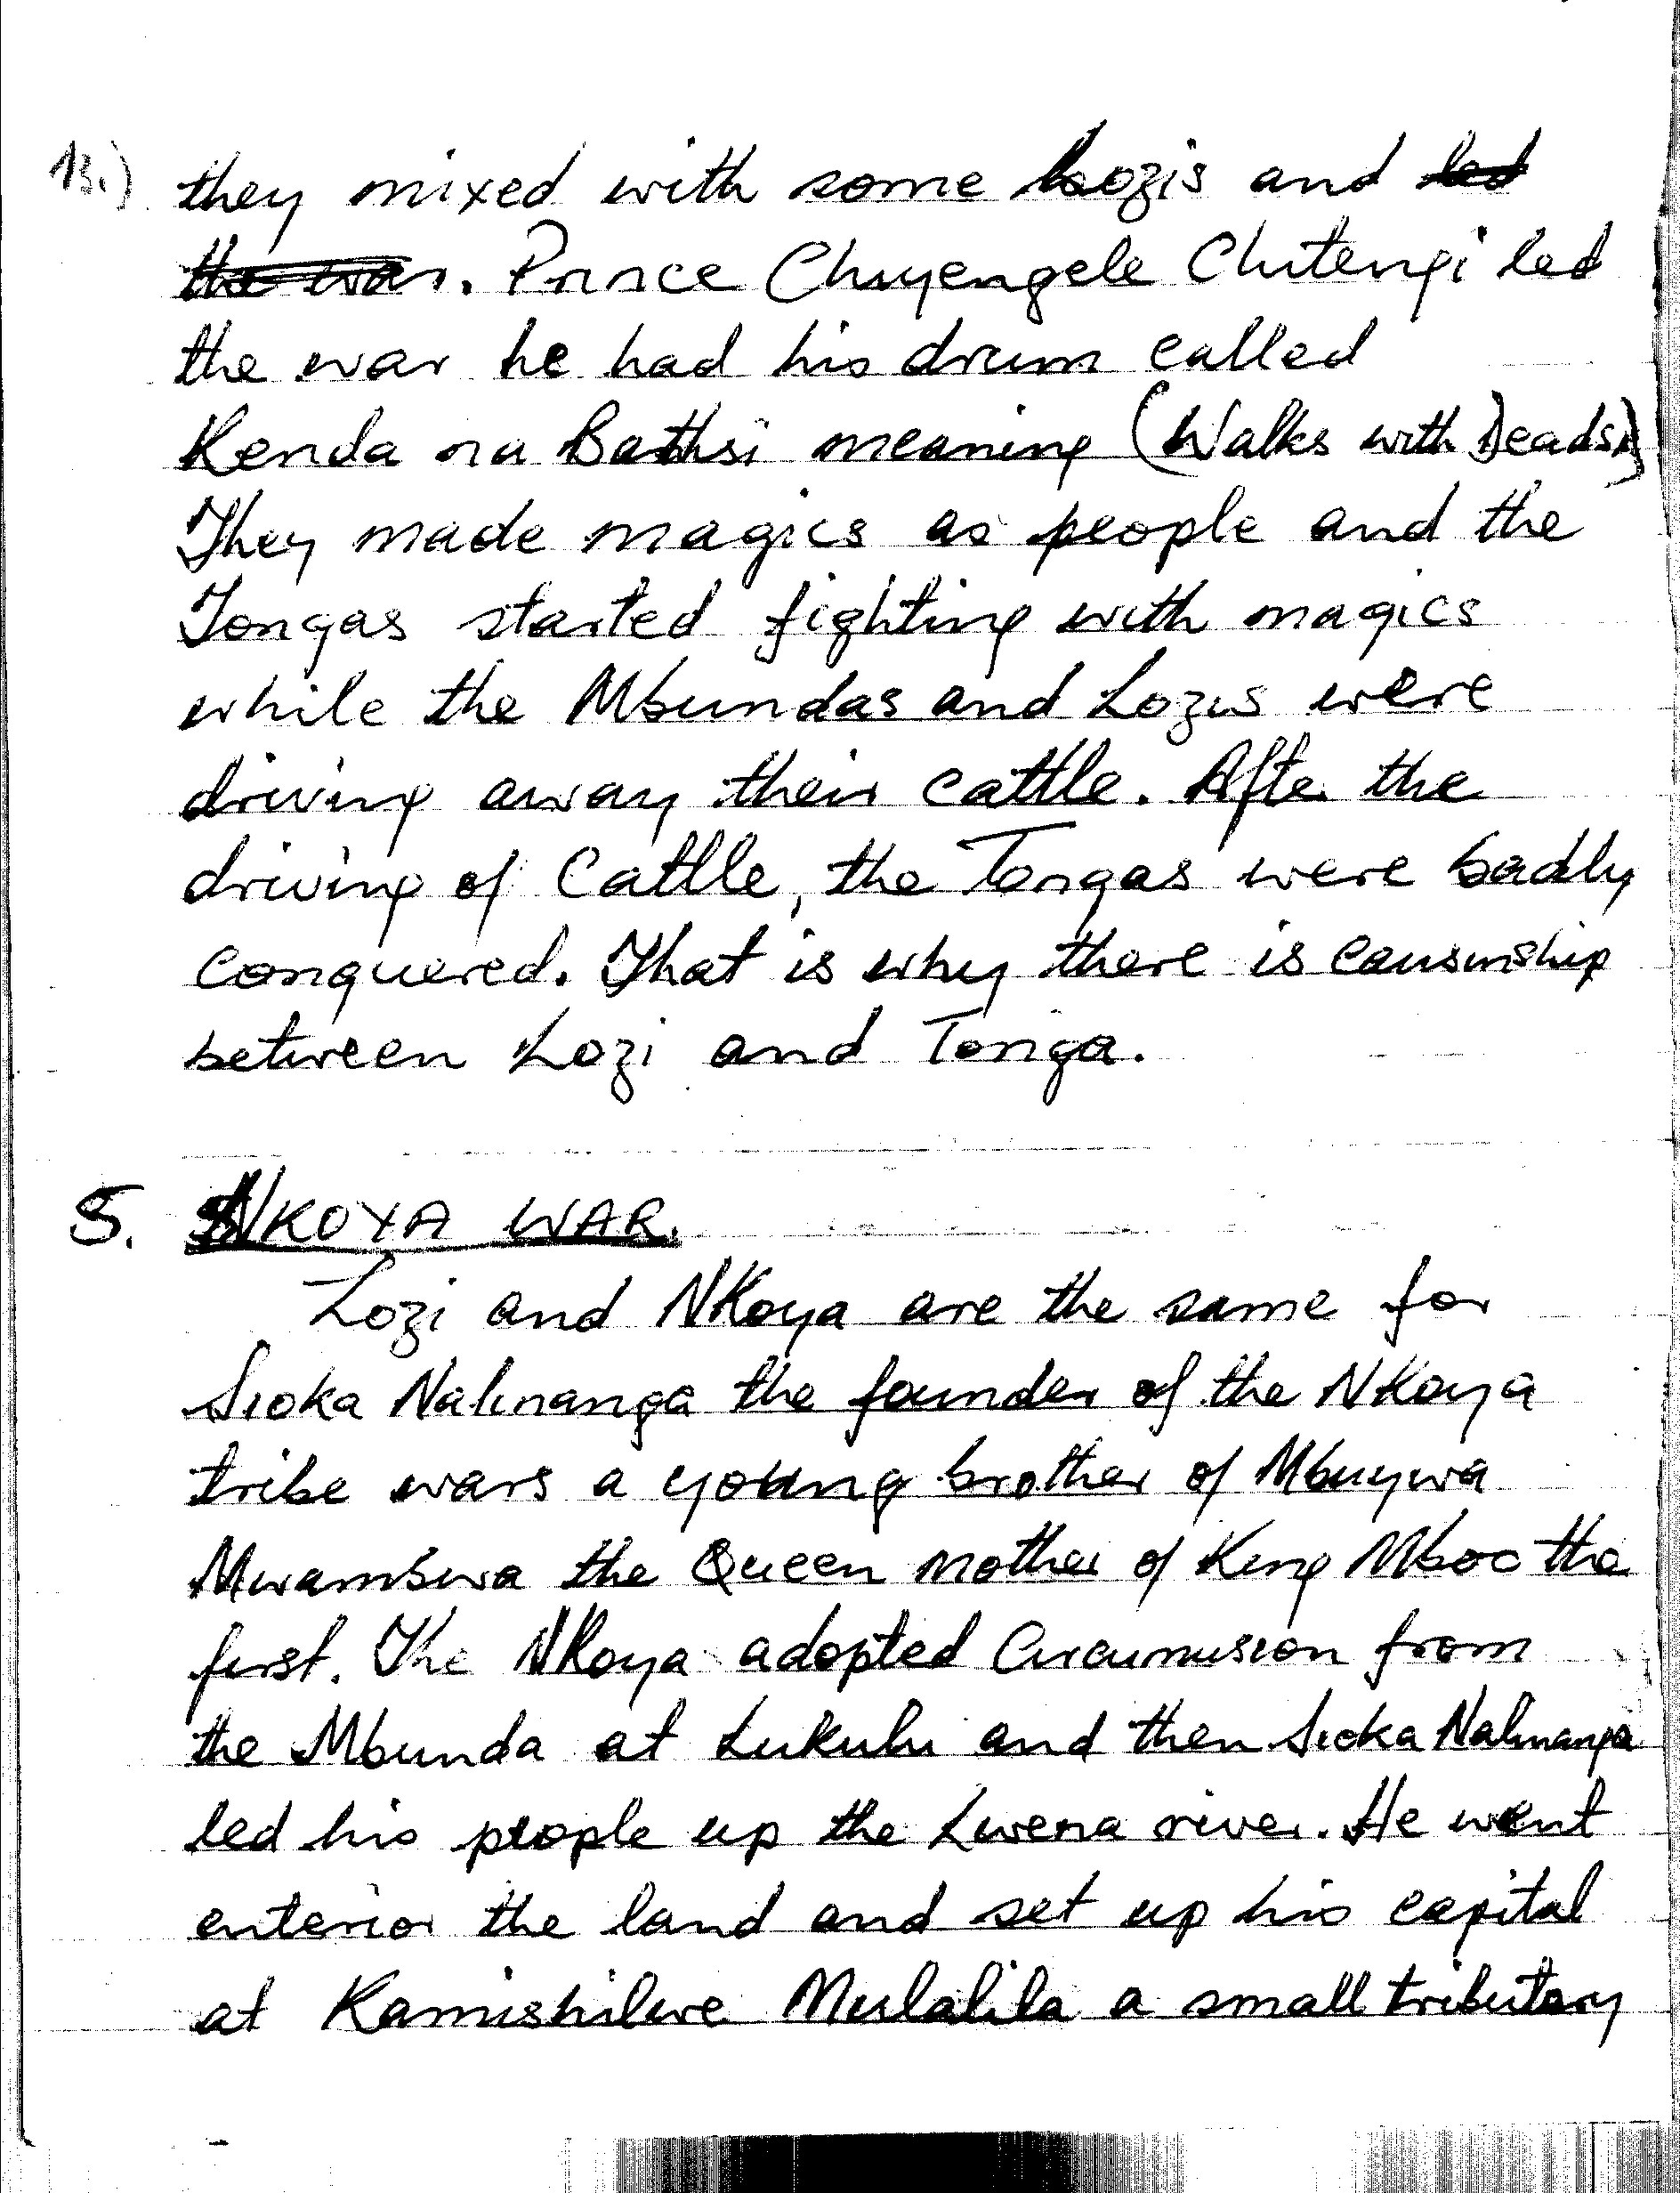 13.) they mixed with some Lozis and led
the war. Prince Chiyengele Chitengi led
the war he had his drum called
Kenda na Bathsi meaning (Walks with Deads.)
They made magics as people and the
Tongas started fighting with magics
while the Mbundas and Lozis were
driving away their cattle. After the
driving of Cattle, the Tongas were badly
conquered. That is why there is cousinship
between Lozi and Tonga.
5. NKOYA WAR.
Lozi and NKoya are the same for
Sioka Nalinanga the founder of the NKoya
tribe wars a young brother of Mbuywa
Mwambwa the Queen mother of King Mboo the
first. The NKoya adopted Circumusion from
the Mbunda at Lukulu and then Sioka Nalinanga
led his people up the Lwena river. He went
enterior the land and set up his capital
at Kamishilwe Mulalila a small tributary